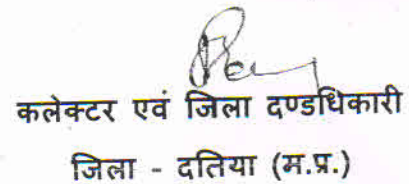 कलेक्टर एवं जिला दण्डधिकारी
जिला - दतिया (म.प्र.)